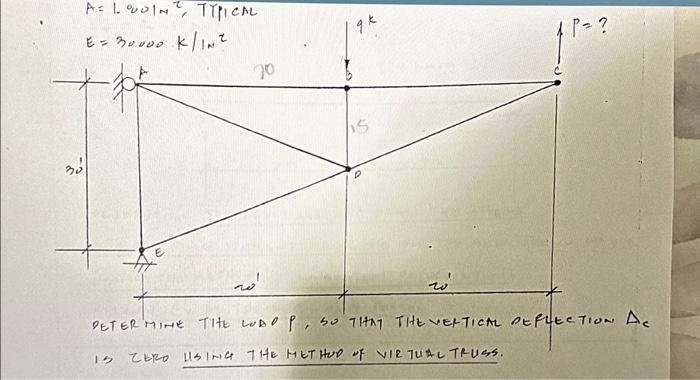 A = 1.00 IN², TYPICAL
9 K
P = ?
E = 30000 K/IN²
A
20
B
C
15
30'
D
E
20'
20'
DETERMINE THE LOAD P, SO THAT THE VERTICAL DEFLECTION Δc
IS ZERO USING THE METHOD OF VIRTUAL TRUSS.